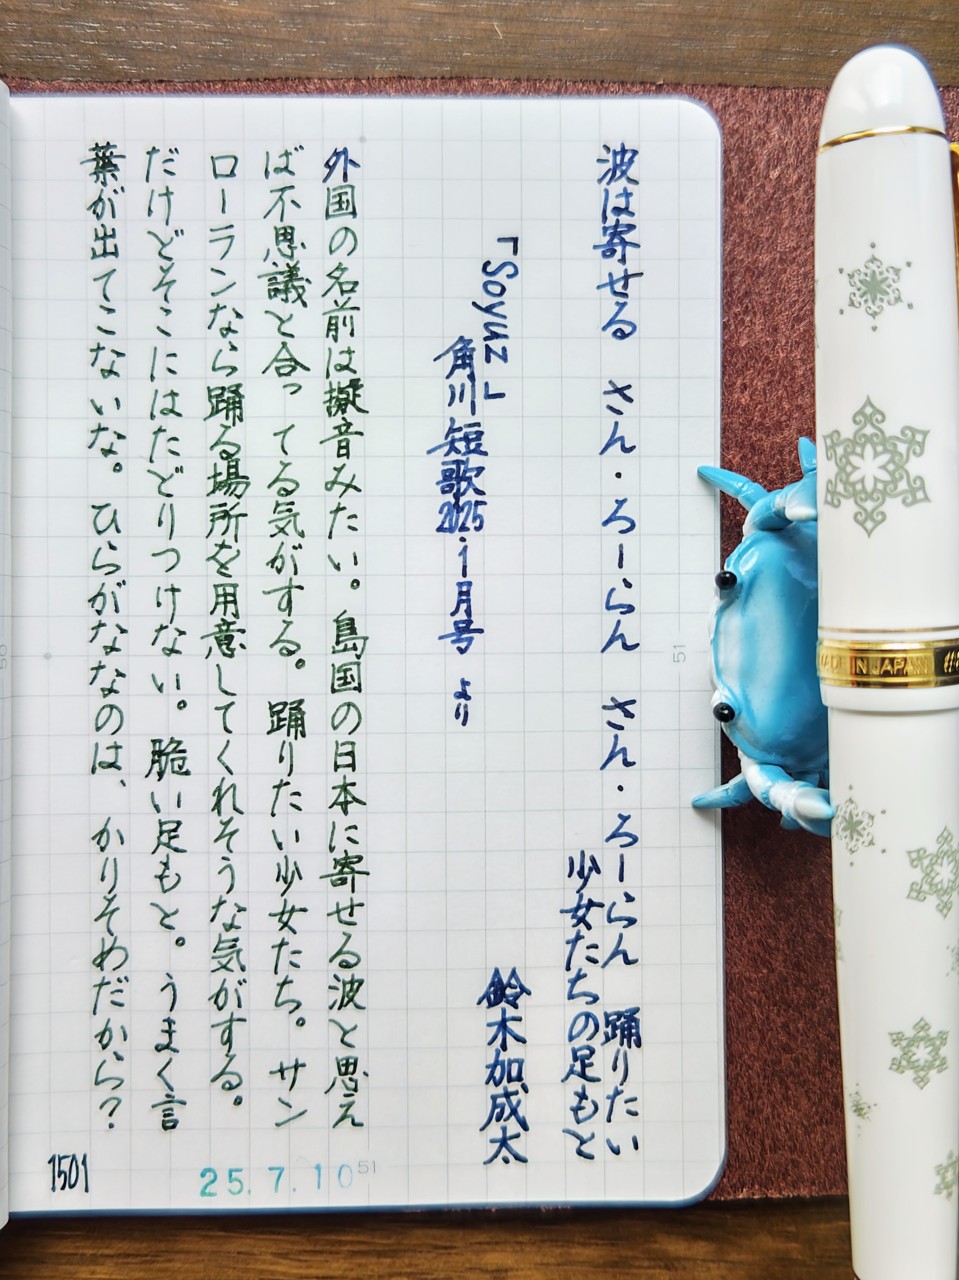 波は寄せる　さん・ろーらん　さん・ろーらん　踊りたい
少女たちの足もと
鈴木加成太
「Soyuz」
角川短歌2025.1月号 より
外国の名前は擬音みたい。島国の日本に寄せる波と思え
ば不思議と合ってる気がする。踊りたい少女たち。サン
ローランなら踊る場所を用意してくれそうな気がする。
だけどそこにはたどりつけない。脆い足もと。うまく言
葉が出てこないな。ひらがななのは、かりそめだから?
1501
25.7.10
51
51
50
MADE IN JAPAN